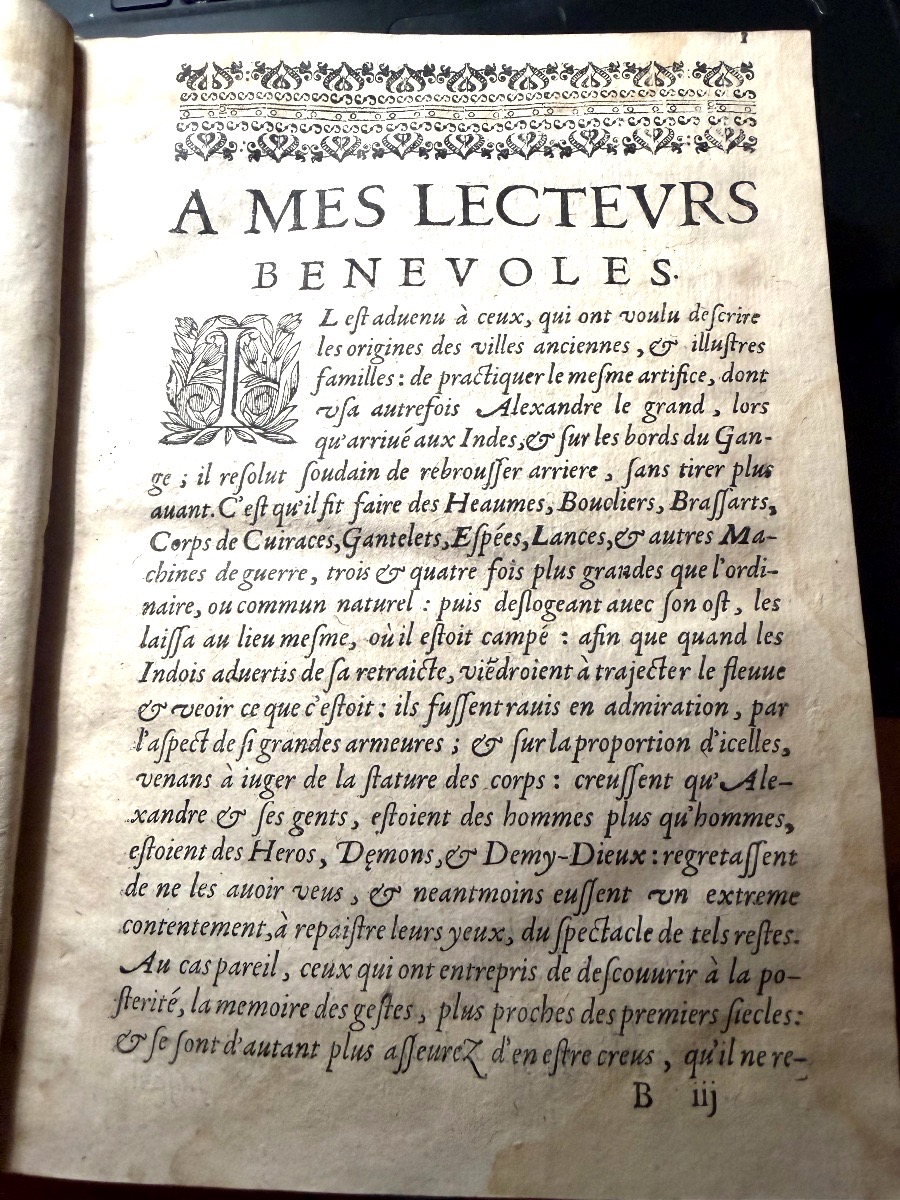 1
A MES LECTEVRS
BENEVOLES.
IL eſt aduenu à ceux, qui ont voulu deſcrire
les origines des villes anciennes, & illuſtres
familles : de practiquer le meſme artifice, dont
vſa autrefois Alexandre le grand, lors
qu'arriué aux Indes, & ſur les bords du Gan-
ge ; il reſolut ſoudain de rebrouſſer arriere, ſans tirer plus
auant. C'eſt qu'il fit faire des Heaumes, Boucliers, Braſſarts,
Corps de Cuiraces, Gantelets, Eſpées, Lances, & autres Ma-
chines de guerre, trois & quatre fois plus grandes que l'ordi-
naire, ou commun naturel : puis deſlogeant auec ſon oſt, les
laiſſa au lieu meſme, où il eſtoit campé : afin que quand les
Indois aduertis de ſa retraicte, viẽdroient à trajecter le fleuue
& veoir ce que c'eſtoit : ils fuſſent rauis en admiration, par
l'aſpect de ſi grandes armeures ; & ſur la proportion d'icelles,
venans à iuger de la ſtature des corps : creuſſent qu'Ale-
xandre & ſes gents, eſtoient des hommes plus qu'hommes,
eſtoient des Heros, Dęmons, & Demy-Dieux : regretaſſent
de ne les auoir veus, & neantmoins euſſent vn extreme
contentement, à repaiſtre leurs yeux, du ſpectacle de tels reſtes.
Au cas pareil, ceux qui ont entrepris de deſcouurir à la po-
ſterité, la memoire des geſtes, plus proches des premiers ſiecles :
& ſe ſont d'autant plus aſſeurez d'en eſtre creus, qu'il ne re-
B iij